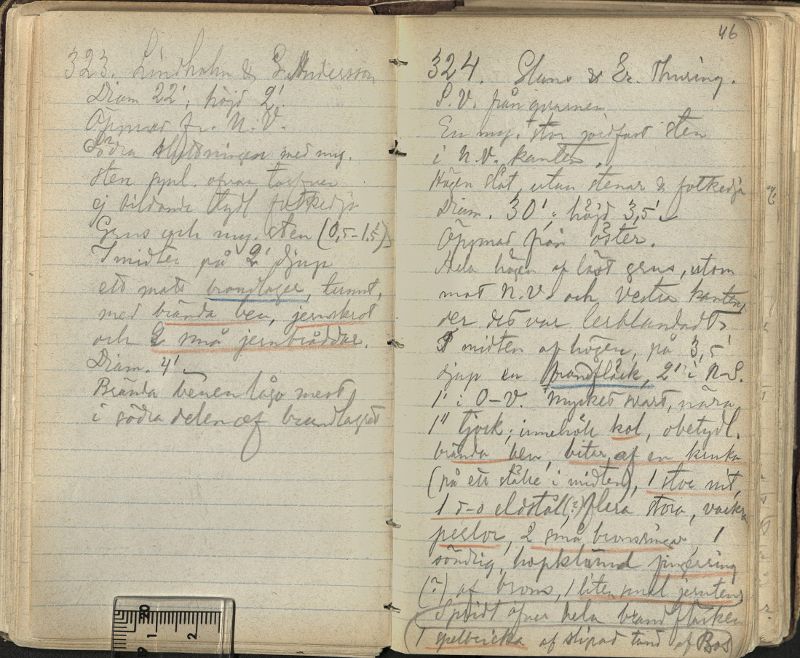 323. Lindholm & G. Andersson
Diam 22', höjd 2'.
Öppnad fr. N.V.
Södra sluttningen med my.
sten synl. ofvan torfven
ej bildande tydl fotkedja
Grus och my. sten (0,5-1,5')
I midten på 2' djup
ett matt brandlager, tunnt,
med brända ben, jernskrot
och 2 små jernbroddar.
Diam. 4'
Brända benen lågo mest
i södra delen af brandlagret
46
324. & Er. Thuring.
S.V. från qvarnen
En my. stor jordfast sten
i N.V. kanten.
Högen slät, utan stenar & fotkedja
Diam. 30', höjd 3,5'
Öppnad från öster.
Hela högen af löst grus, utom
mot N.V. och Vestra kanten,
der det var lerblandadt.
I midten af högen, på 3,5'
djup en brandfläck, 2' i N-S.
1' i O-V. mycket svart, nära
1" tjock; innehöll kol, obetydl.
brända ben bitar, af en kruka
(på ett ställe i midten), 1 stor nit,
1 eldstål(?), flera stora, vackra
perlor, 2 små bronsringar, 1
söndrig, hopklämd fingerring
(?) af brons, 1 liten smal jernten,
Spridt öfver hela brandfläcken
1 spelbricka af slipad tand af Bos
20
1 2